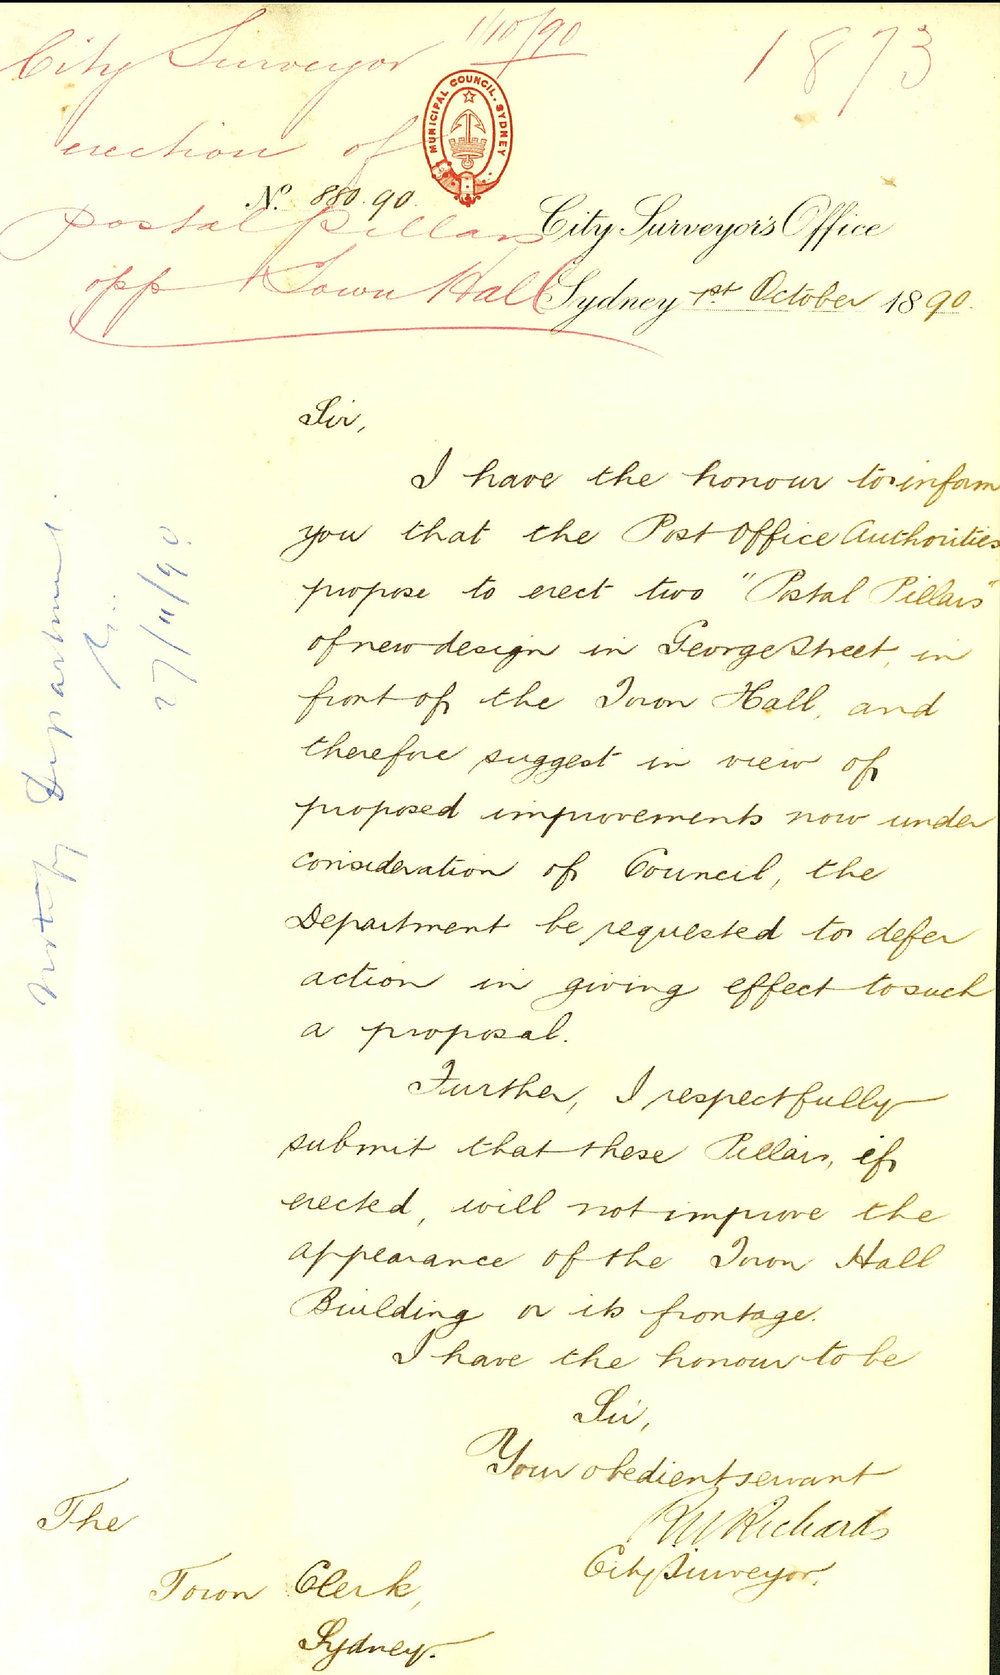 City Surveyor 1/10/90
1873
erection of
postal pillars
opp Town Hall
MUNICIPAL COUNCIL. SYDNEY
No. 880.90.
City Surveyor's Office
Sydney 1st October 1890.
Sir,
I have the honour to inform
you that the Post Office Authorities
propose to erect two "Postal Pillars"
of new design in George Street, in
front of the Town Hall, and
therefore suggest in view of
proposed improvements now under
consideration of Council, the
Department be requested to defer
action in giving effect to such
a proposal.
Further, I respectfully
submit that these Pillars, if
erected, will not improve the
appearance of the Town Hall
Building or its frontage.
I have the honour to be
Sir,
Your obedient servant
RW Richards
City Surveyor.
The
Town Clerk,
Sydney.
Notify Department
27/11/90